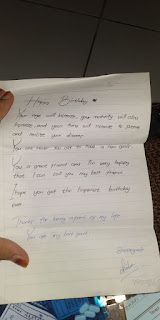 Happy Birthday
Your age will increase, your maturity will also
increase and your time will increase to pursue
and realize your dreams
You are never too old to make a new goal.
You a great friend and I'm very happy
that I can call you my best friend
I hope you get the happiest birthday
ever
Thanks for being a part of my life
You are my best part